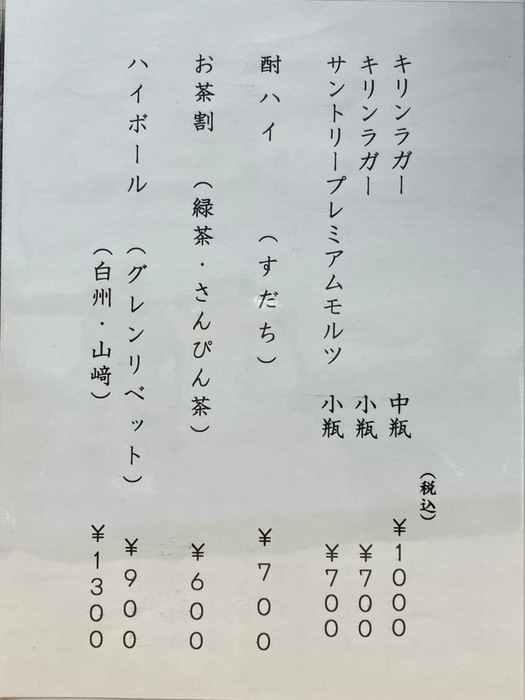 (税込)
キリンラガー 中瓶 ¥1000
キリンラガー 小瓶 ¥700
サントリープレミアムモルツ 小瓶 ¥700
酎ハイ (すだち) ¥700
お茶割 (緑茶・さんぴん茶) ¥600
ハイボール (グレンリベット) ¥900
(白州・山﨑) ¥1300